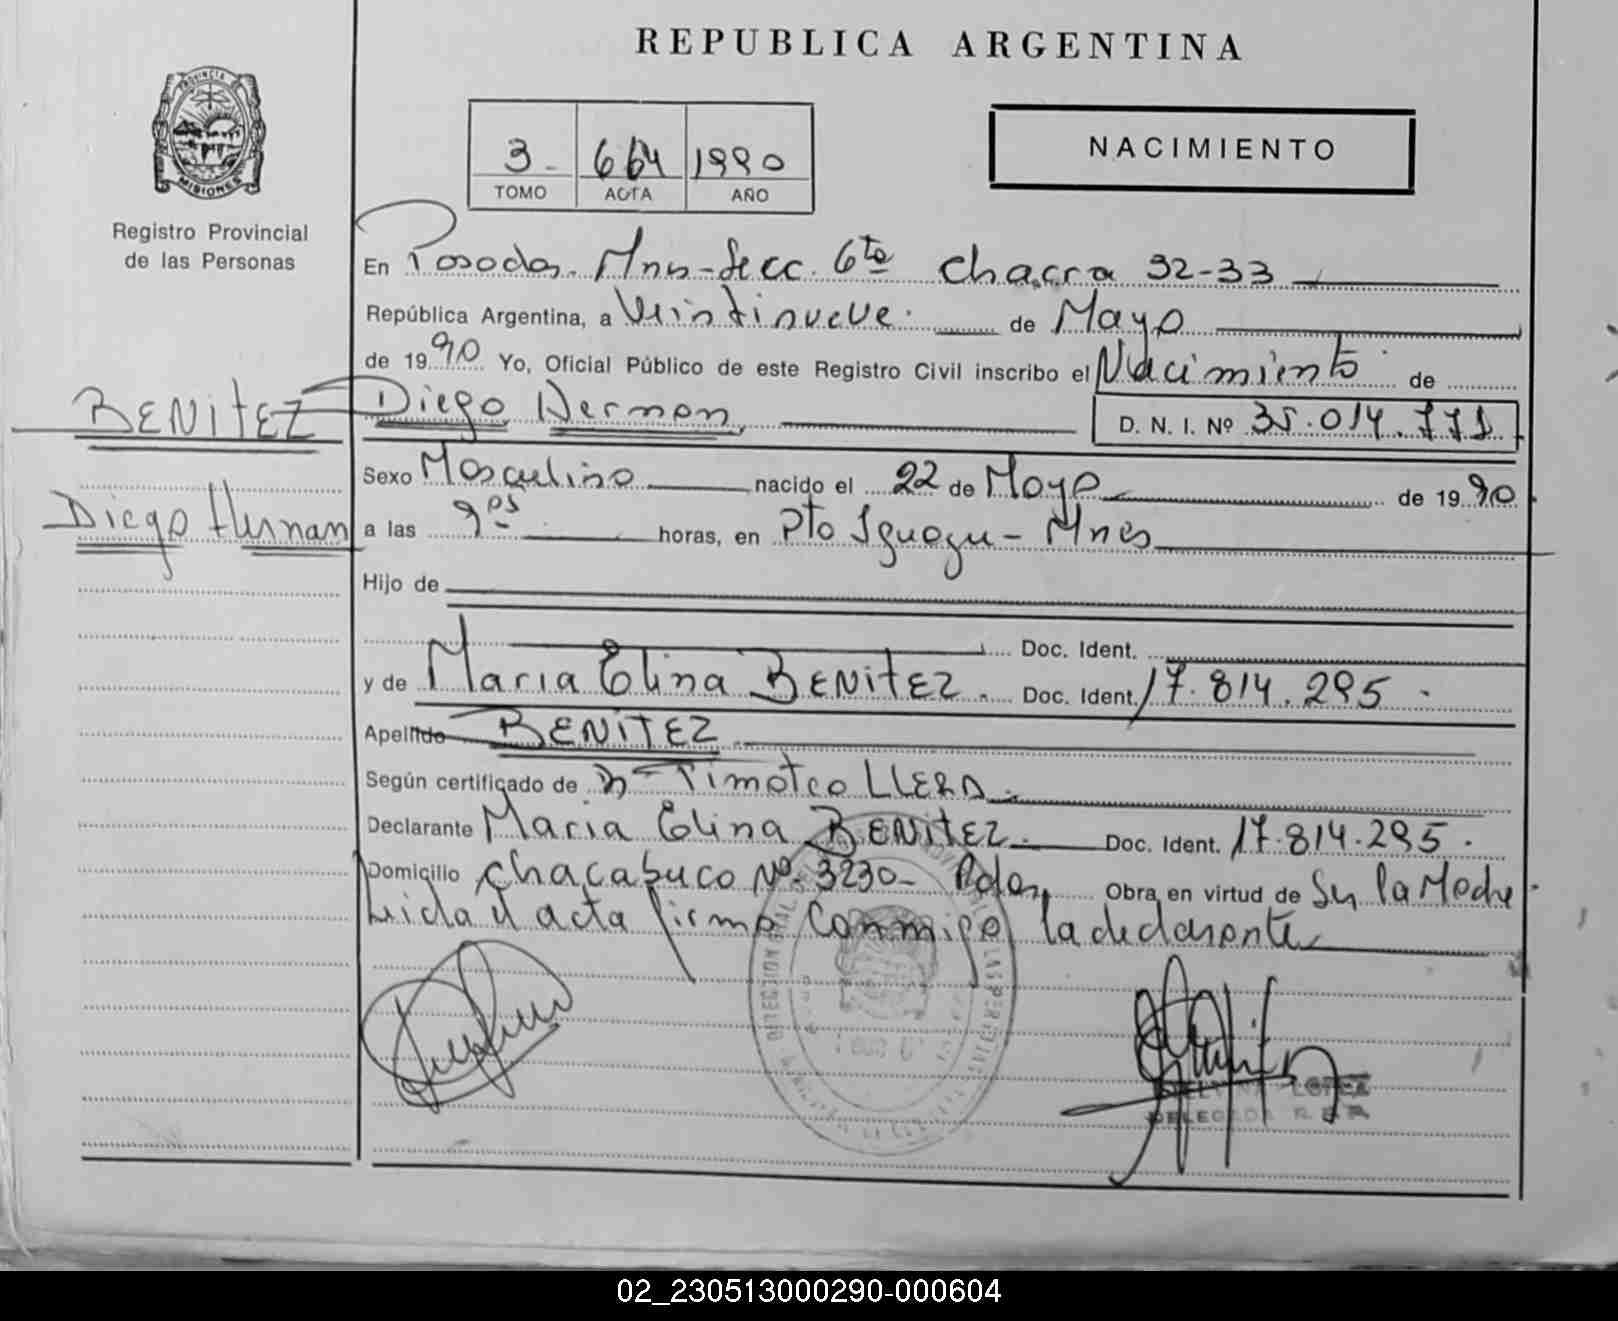 REPUBLICA ARGENTINA
PROVINCIA
MISIONES
3 664 1990
TOMO ACTA AÑO
NACIMIENTO
Registro Provincial
de las Personas
En Posadas. Mns-Secc. 6ta Chacra 32-33
República Argentina, a Veintinueve de Mayo
de 1990 Yo, Oficial Público de este Registro Civil inscribo el Nacimiento de
BENITEZ Diego Hernan, D. N. I. Nº 35.014.771
Sexo Masculino nacido el 22 de Mayo de 1990
Diego Hernan a las 9 horas, en Pto Iguazu - Mnes
Hijo de
Doc. Ident.
y de Maria Elina BENITEZ. Doc. Ident. 17.814.295.
Apellido BENITEZ
Según certificado de Timoteo LLERA
Declarante Maria Elina BENITEZ. Doc. Ident. 17.814.295.
Domicilio Chacabuco Nº 3230- Pdas, Obra en virtud de Ser la Madre
Leida el acta firma conmigo la declarante
LOPEZ
DELEGADA R.
02_230513000290-000604